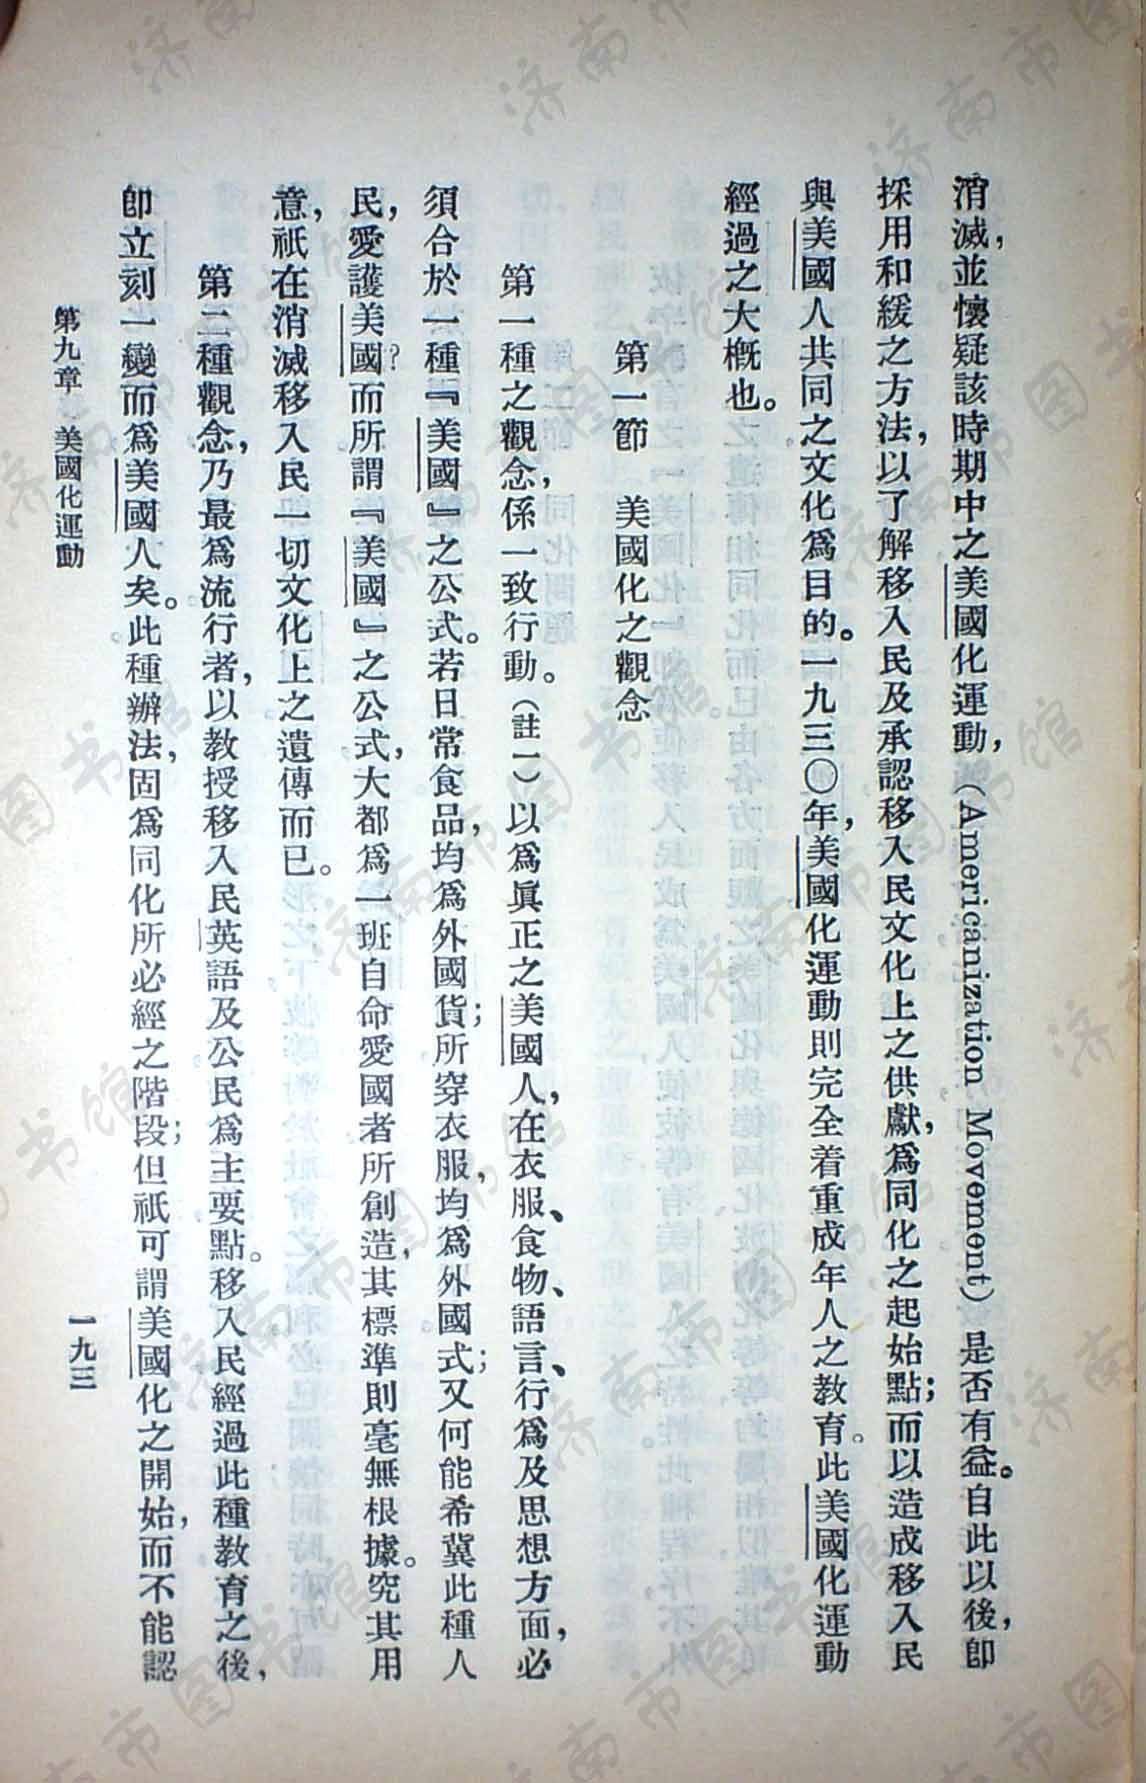 消滅，並懷疑該時期中之美國化運動，（Americanization Movement）是否有益。自此以後，卽
採用和緩之方法，以了解移入民及承認移入民文化上之供獻，爲同化之起始點；而以造成移入民
與美國人共同之文化爲目的。一九三〇年，美國化運動則完全着重成年人之教育。此美國化運動
經過之大槪也。
第一節　美國化之觀念
第一種之觀念，係一致行動。（註一）以爲眞正之美國人，在衣服、食物、語言、行爲及思想方面，必
須合於一種『美國』之公式。若日常食品，均爲外國貨；所穿衣服，均爲外國式；又何能希冀此種人
民，愛護美國？而所謂『美國』之公式，大都爲一班自命愛國者所創造，其標準則毫無根據。究其用
意，祇在消滅移入民一切文化上之遺傳而已。
第二種觀念，乃最爲流行者，以教授移入民英語及公民爲主要點。移入民經過此種教育之後，
卽立刻一變而爲美國人矣。此種辦法，固爲同化所必經之階段；但祇可謂美國化之開始，而不能認
第九章　美國化運動
一九三
济南市图书馆